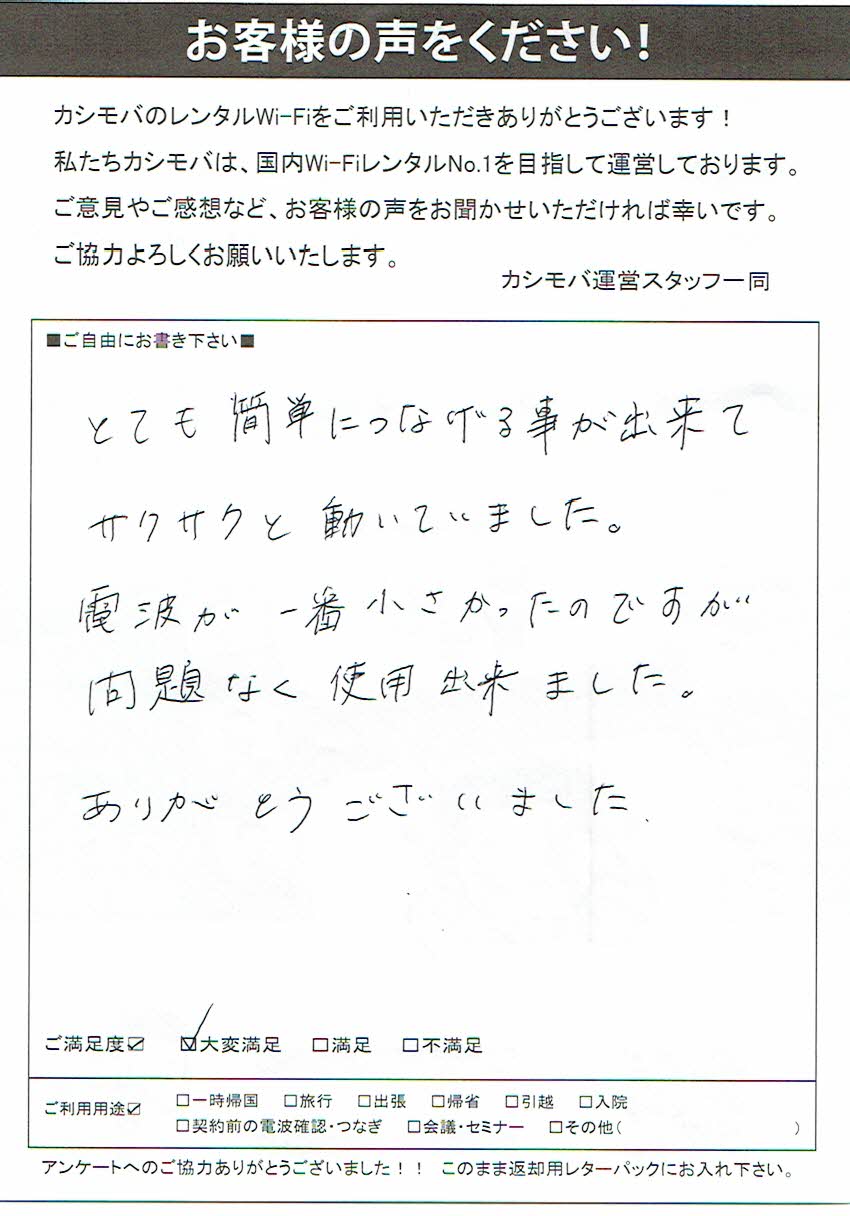 お客様の声をください!
カシモバのレンタルWi-Fiをご利用いただきありがとうございます！
私たちカシモバは、国内Wi-FiレンタルNo.1を目指して運営しております。
ご意見やご感想など、お客様の声をお聞かせいただければ幸いです。
ご協力よろしくお願いいたします。
カシモバ運営スタッフ一同
■ご自由にお書き下さい■
とても簡単につなげる事が出来て
サクサクと動いていました。
電波が一番小さかったのですが
問題なく使用出来ました。
ありがとうございました.
ご満足度☑ ☑大変満足 □満足 □不満足
ご利用用途☑ □一時帰国 □旅行 □出張 □帰省 □引越 □入院
□契約前の電波確認・つなぎ □会議・セミナー □その他( )
アンケートへのご協力ありがとうございました！！ このまま返却用レターパックにお入れ下さい。